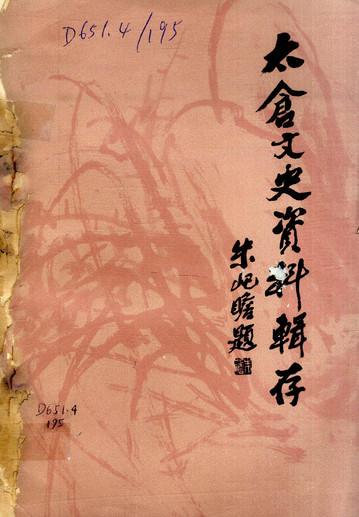 D651.4/195
太倉文史資料輯存
朱屺瞻題
D651.4
195